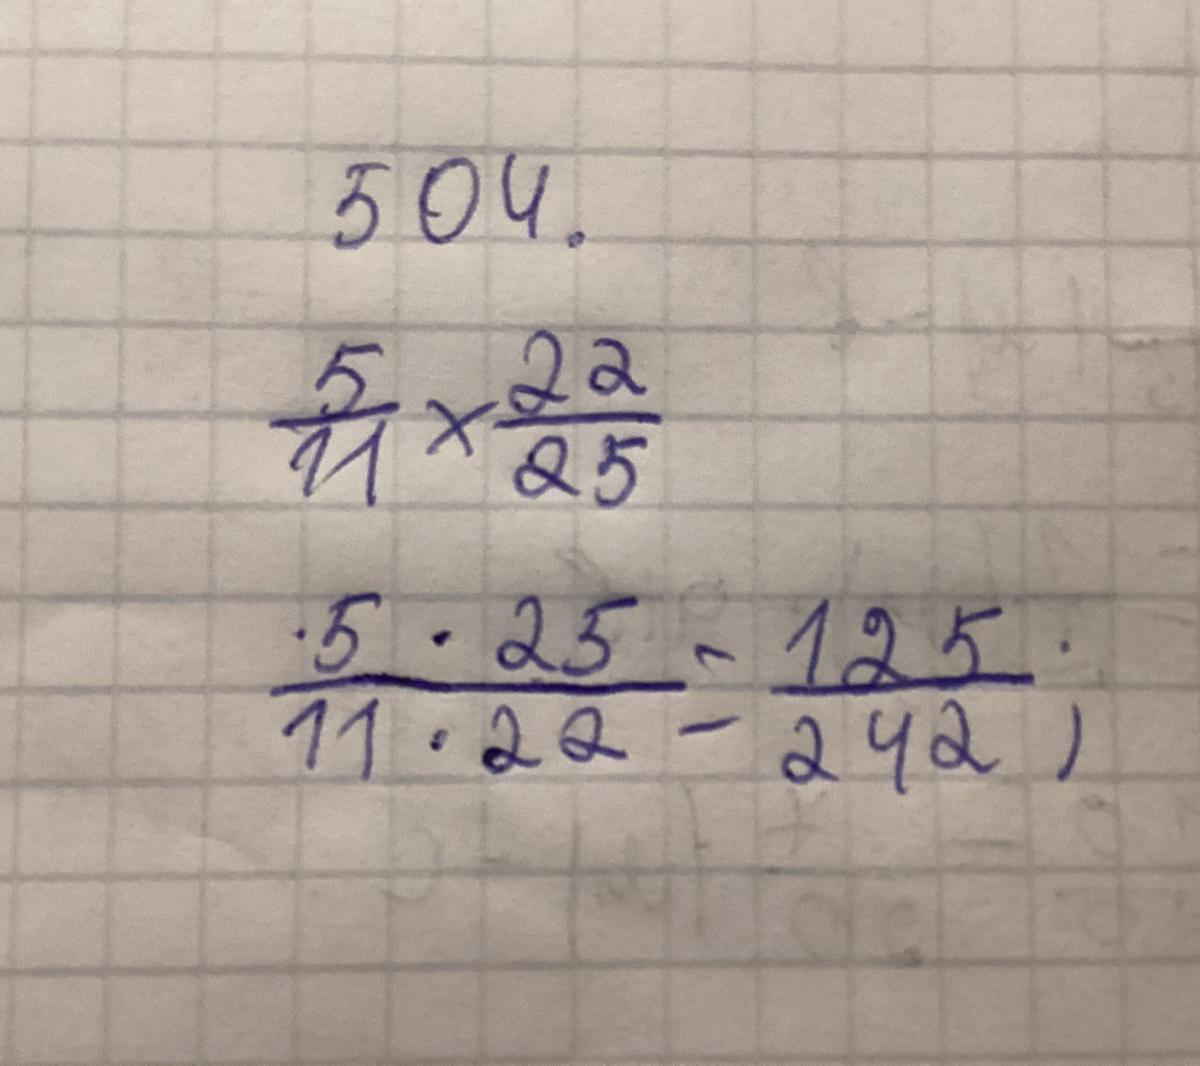 504.
5/11 × 22/25
5 · 25 / 11 · 22 = 125/242;